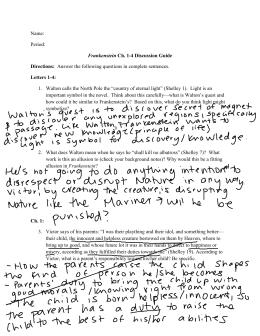 Name:
Period:
Frankenstein Ch. 1-4 Discussion Guide
Directions: Answer the following questions in complete sentences.
Letters 1-4:
1. Walton calls the North Pole the "country of eternal light" (Shelley 1). Light is an
important symbol in the novel. Think about this carefully—what is Walton's quest and
how could it be similar to Frankenstein's? Based on this, what do you think light might
symbolize?
Walton's quest is to discover secret of magnet
& to discover any unexplored regions, specifically
a passage. Like Walton, Frankenstein wants to
discover new knowledge (principle of life)
Light is symbol for discovery/knowledge.
2. What does Walton mean when he says he "shall kill no albatross" (Shelley 7)? What
work is this an allusion to (check your background notes)? Why would this be a fitting
allusion in Frankenstein?
He's not going to do anything intention to
disrespect or disrupt Nature in any way.
Victor, by creating the creature, is disrupting
Nature like the Mariner → will he be
punished?
Ch. 1:
3. Victor says of his parents: "I was their plaything and their idol, and something better—
their child, the innocent and helpless creature bestowed on them by Heaven, whom to
bring up to good, and whose future lot it was in their hands to direct to happiness or
misery, according as they fulfilled their duties towards me" (Shelley 19). According to
Victor, what is a parent's responsibility toward his/her child? Be specific.
- How the parents raise the child shapes
the kind of person he/she becomes
- Parents' duty to bring the child up with
good morals / knowing right from wrong
- The child is born helpless/innocent, so
the parent has a duty to raise the
child to the best of his/her abilities